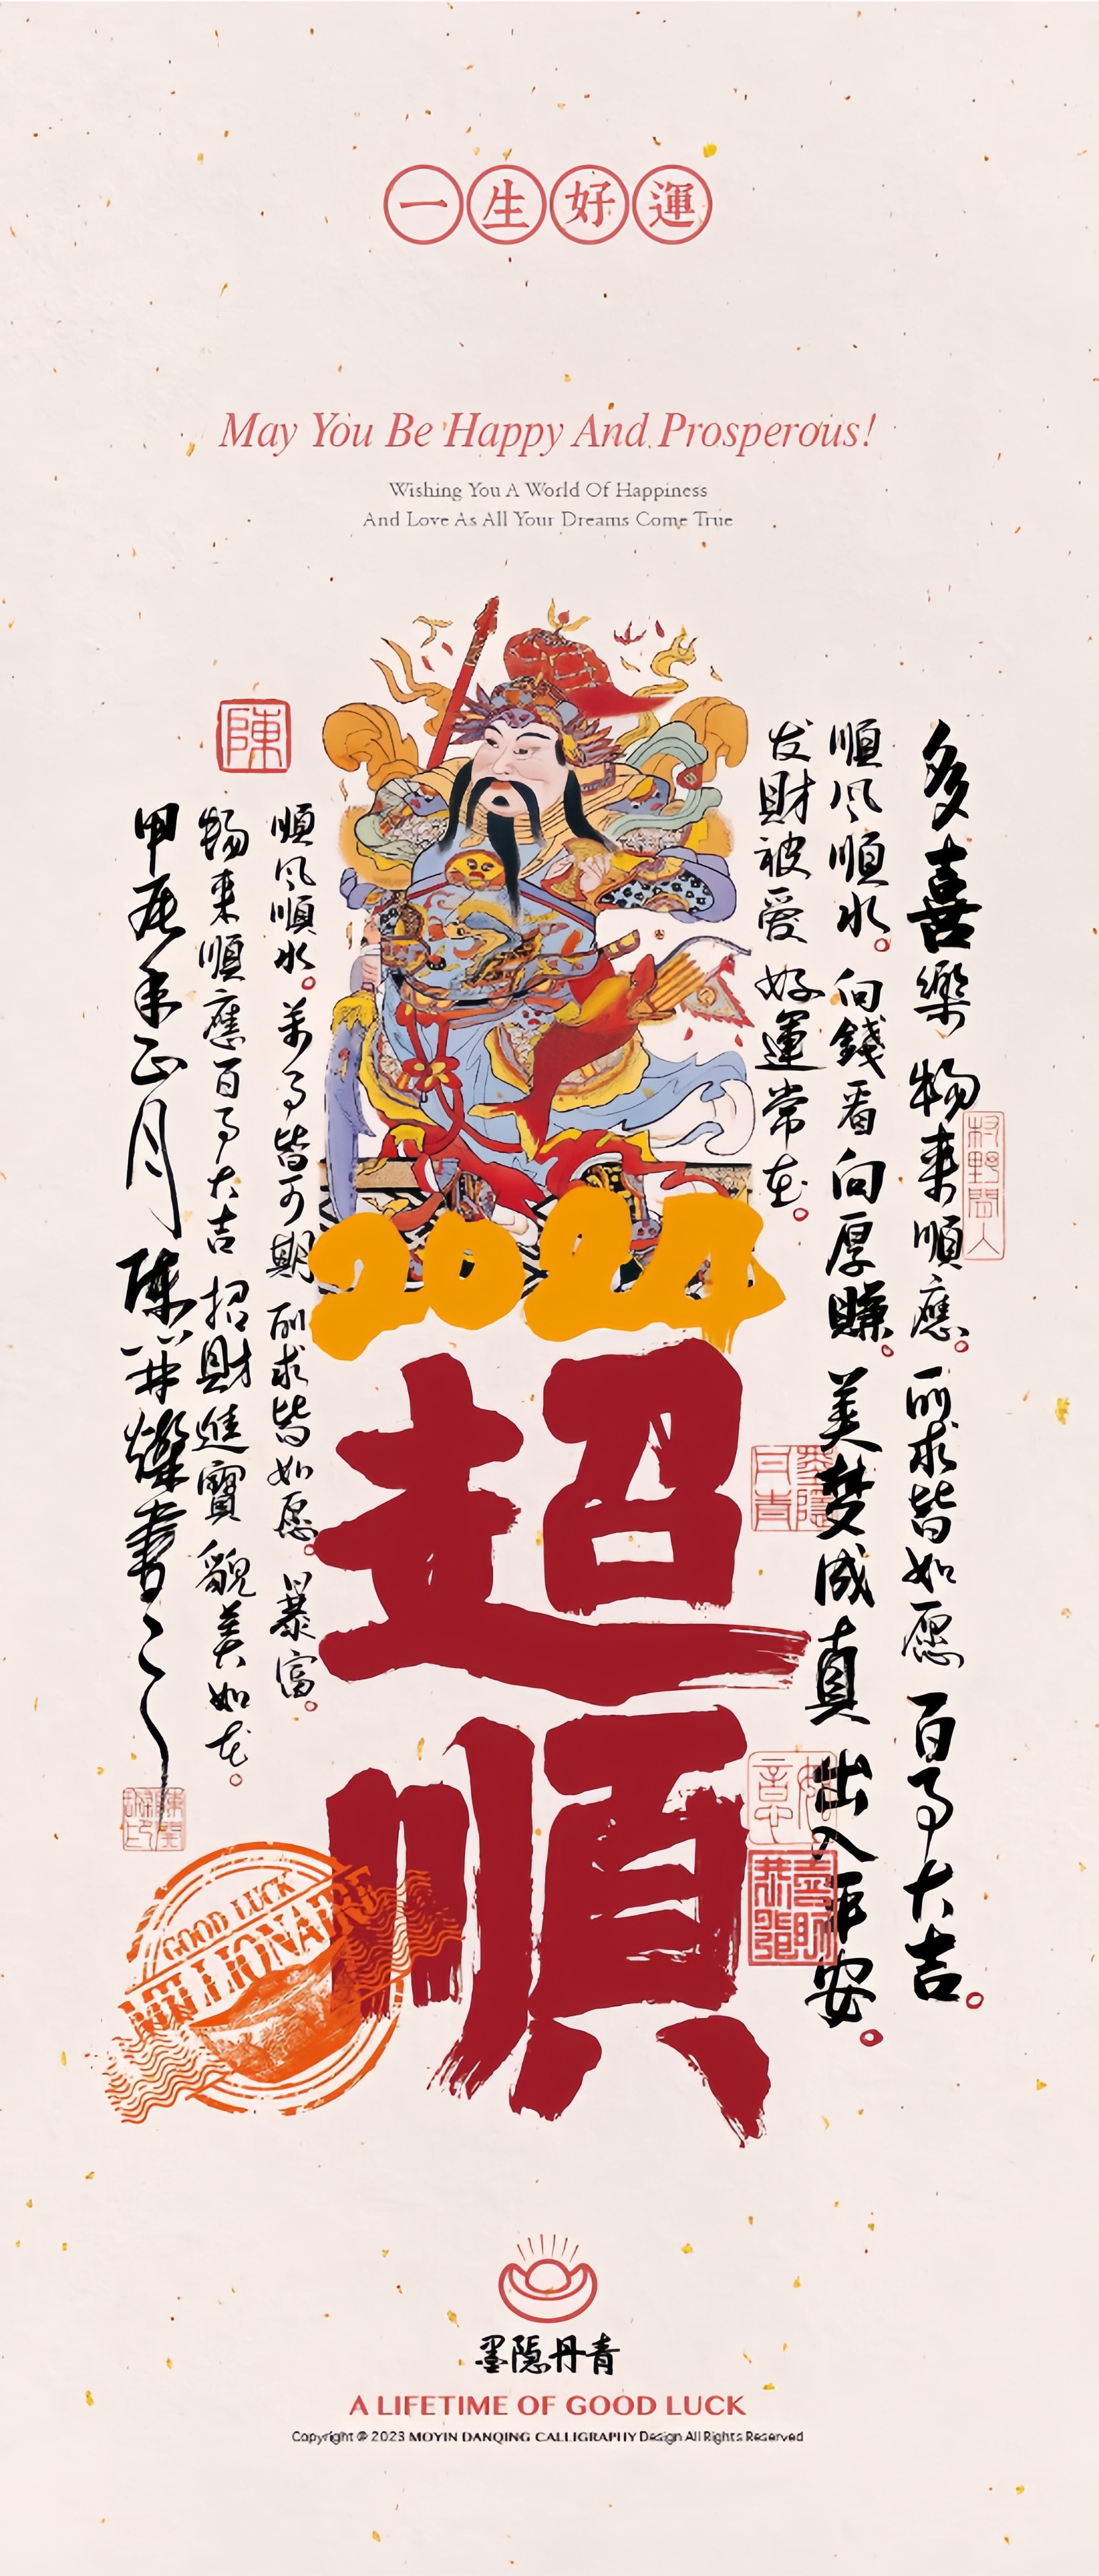 一生好運
May You Be Happy And Prosperous!
Wishing You A World Of Happiness
And Love As All Your Dreams Come True
多喜樂 物来順應。所求皆如愿 百事大吉。
順风順水。向錢看向厚赚。美梦成真 出入平安。
发財被爱 好運常在。
2024
超順
順风順水。萬事皆可期 所求皆如愿。暴富。
物来順應百事大吉 招財進寶 貌美如花。
甲辰年正月 陳 燦書
陳
如意
恭喜發財
GOOD LUCK
MILLIONAIRE
墨隐丹青
A LIFETIME OF GOOD LUCK
Copyright © 2023 MOYIN DANQING CALLIGRAPHY Design All Rights Reserved